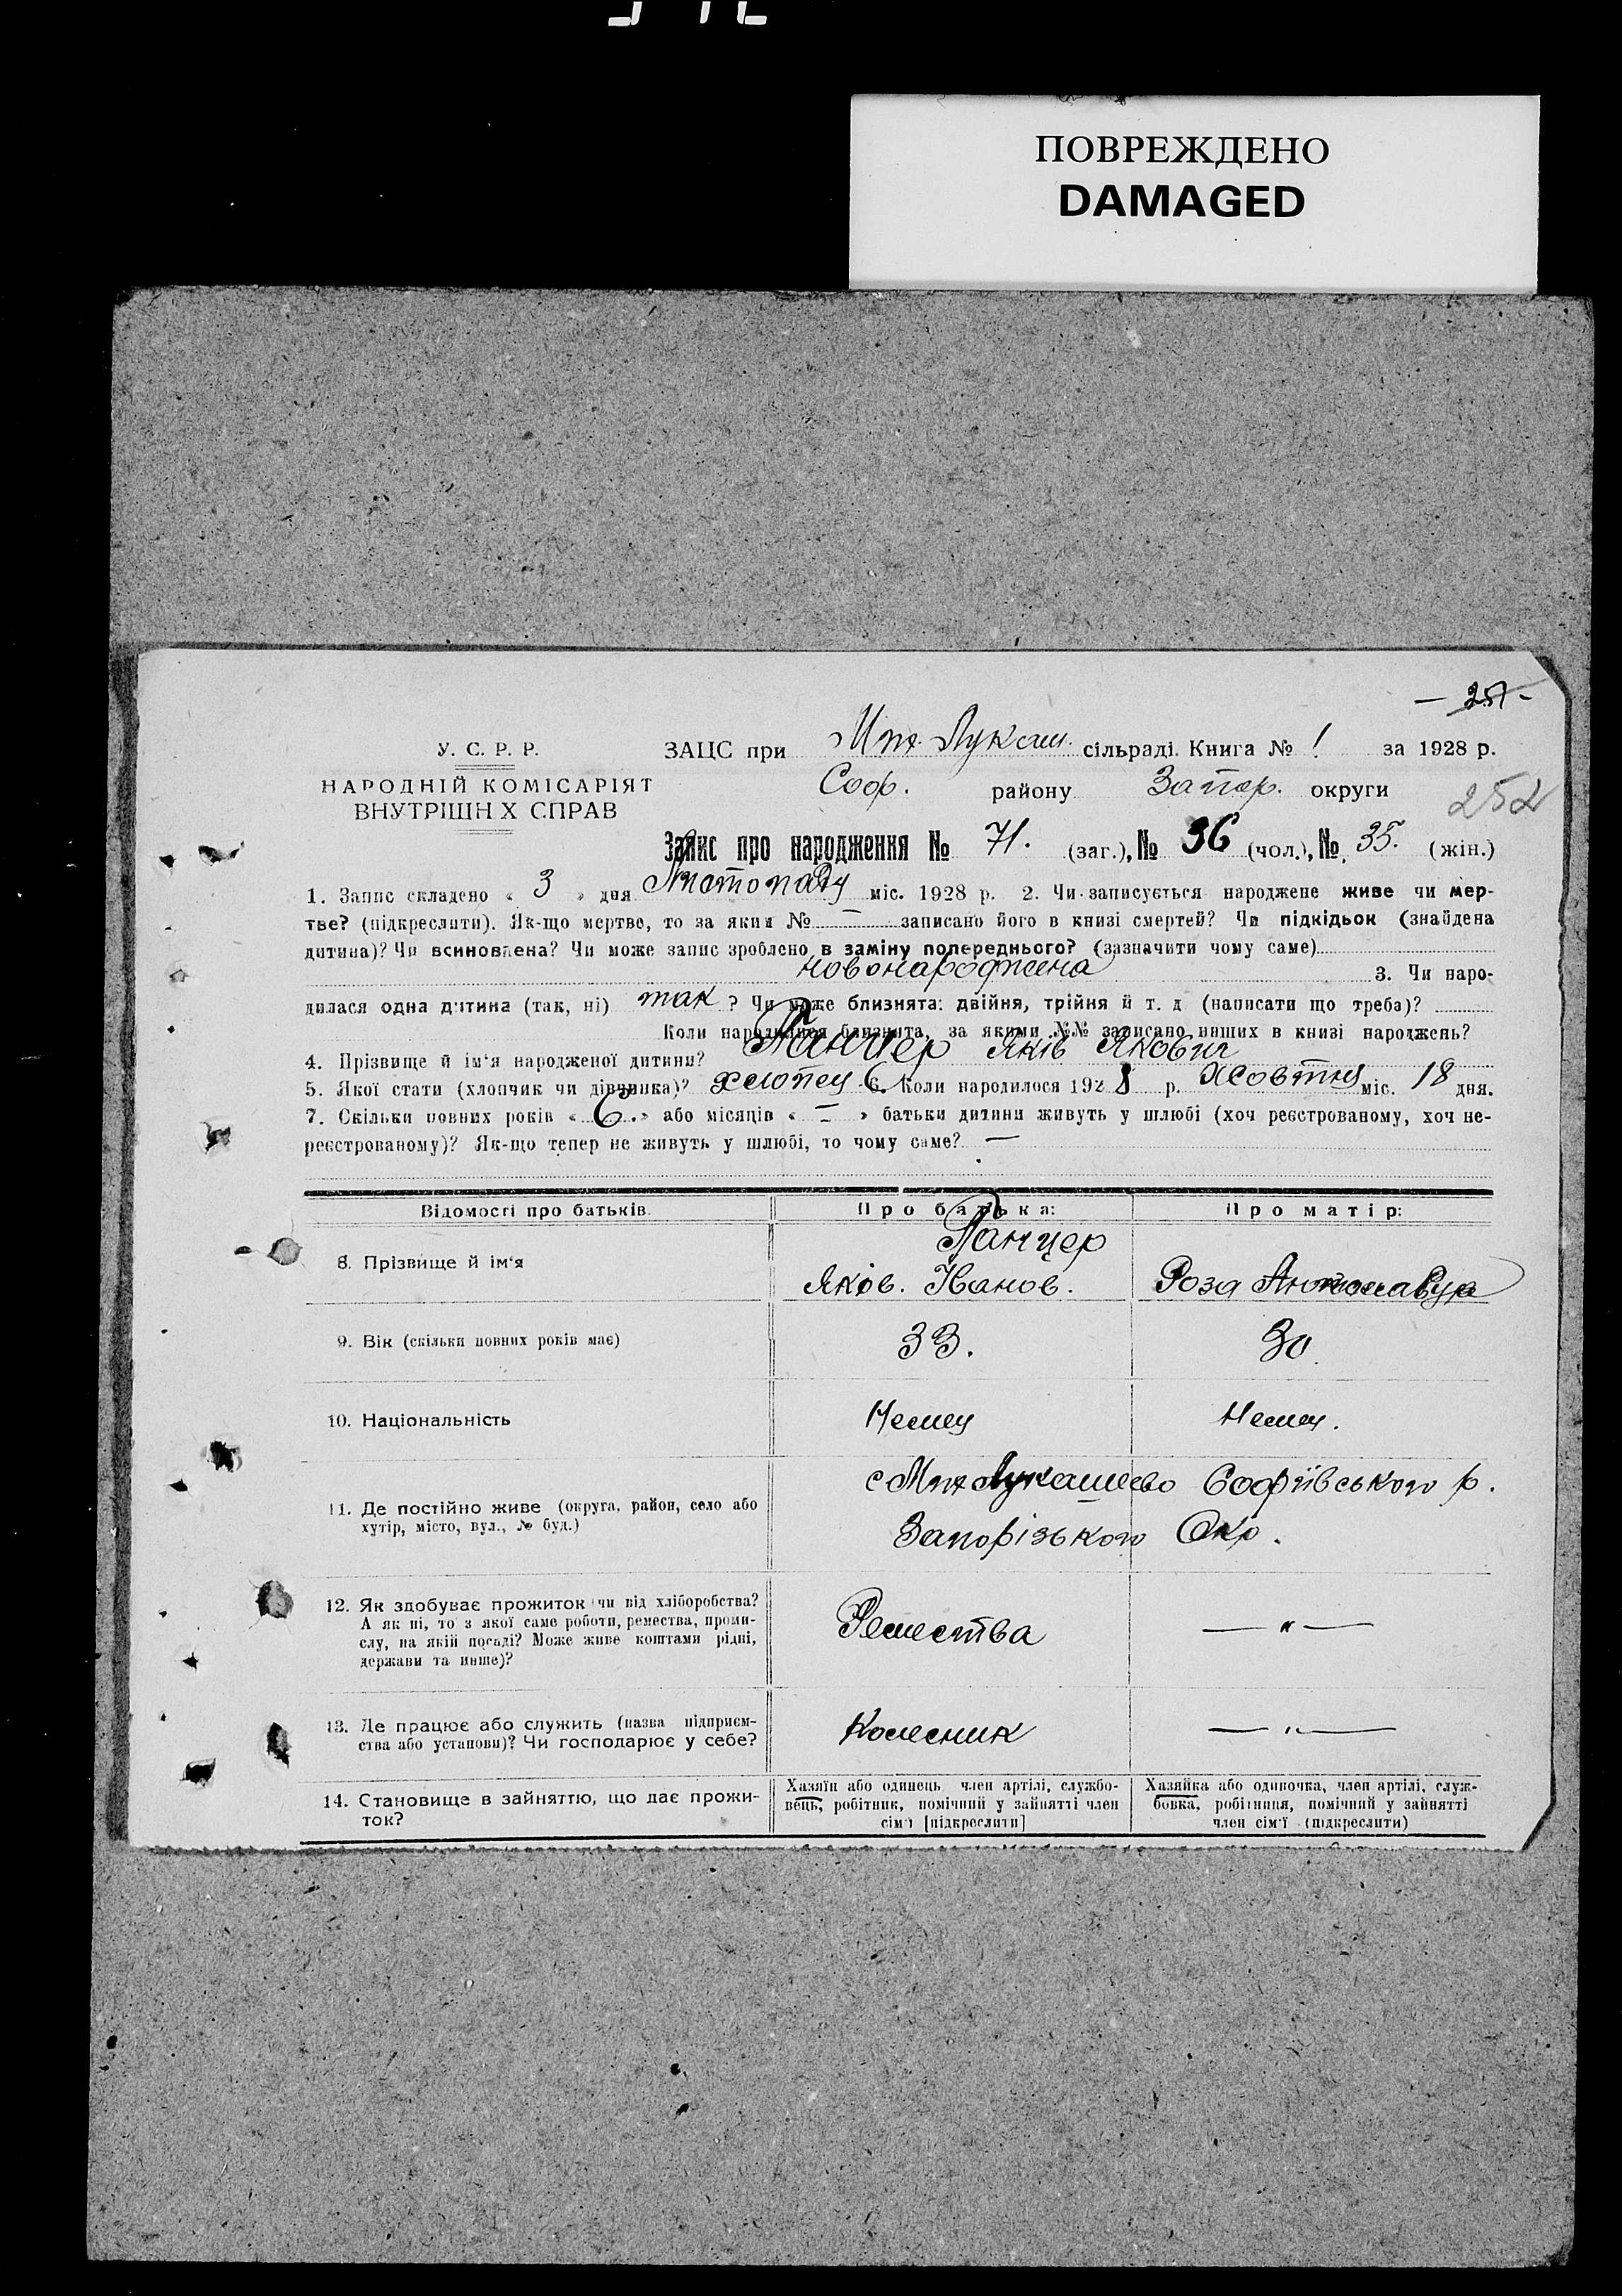 ПОВРЕЖДЕНО
DAMAGED
252
У. С. Р. Р.
НАРОДНІЙ КОМІСАРІЯТ
ВНУТРІШН Х СПРАВ
ЗАЦС при Мит. Лукаш. сільраді. Книга № 1 за 1928 р.
Соф. району Запор. округи
Запис про народження № 71. (заг.), № 36 (чол.), № 35. (жін.)
1. Запис складено « 3 » дня Листопаду міс. 1928 р. 2. Чи записується народжене живе чи мер-
тве? (підкреслити). Як-що мертве, то за яким № — записано його в книзі смертей? Чи підкідьок (знайдена
дитина)? Чи всиновлена? Чи може запис зроблено в заміну попереднього? (зазначити чому саме)
новонароджена 3. Чи наро-
дилася одна дитина (так, ні) так ? Чи може близнята: двійня, трійня й т. д (написати що треба)?
Коли народилися близнята, за якими №№ записано инших в книзі народжень?
4. Прізвище й ім'я народженої дитини? Панцер Яків Якович
5. Якої стати (хлопчик чи дівчинка)? хлопец 6. Коли народилося 1928 р. Жовтня міс. 18 дня.
7. Скільки повних років « 6. » або місяців « — » батьки дитини живуть у шлюбі (хоч реєстрованому, хоч не-
реєстрованому)? Як-що тепер не живуть у шлюбі, то чому саме? —
Відомості про батьків Про батька: Про матір:
8. Прізвище й ім'я Панцер
Яків. Іванов. Роза
9. Вік (скільки повних років має) 33. 30
10. Національність Немец Немец.
11. Де постійно живе (округа, район, село або
хутір, місто, вул., № буд.)
с Мит Лукашево Софіївського р.
Запорізького Окр.
12. Як здобуває прожиток чи від хліборобства?
А як ні, то з якої саме роботи, ремества, проми-
слу, на якій посаді? Може живе коштами рідні,
держави та инше)?
Ремества — " —
13. Де працює або служить (назва підприєм-
ства або установи)? Чи господарює у себе?
Колесник — " —
14. Становище в зайняттю, що дає прожи-
ток?
Хазяїн або одинець, член артілі, службо-
вець, робітник, помічний у зайнятті член
сім'ї [підкреслити]
Хазяйка або одиночка, член артілі, служ-
бовка, робітниця, помічний у зайнятті
член сім'ї (підкреслити)